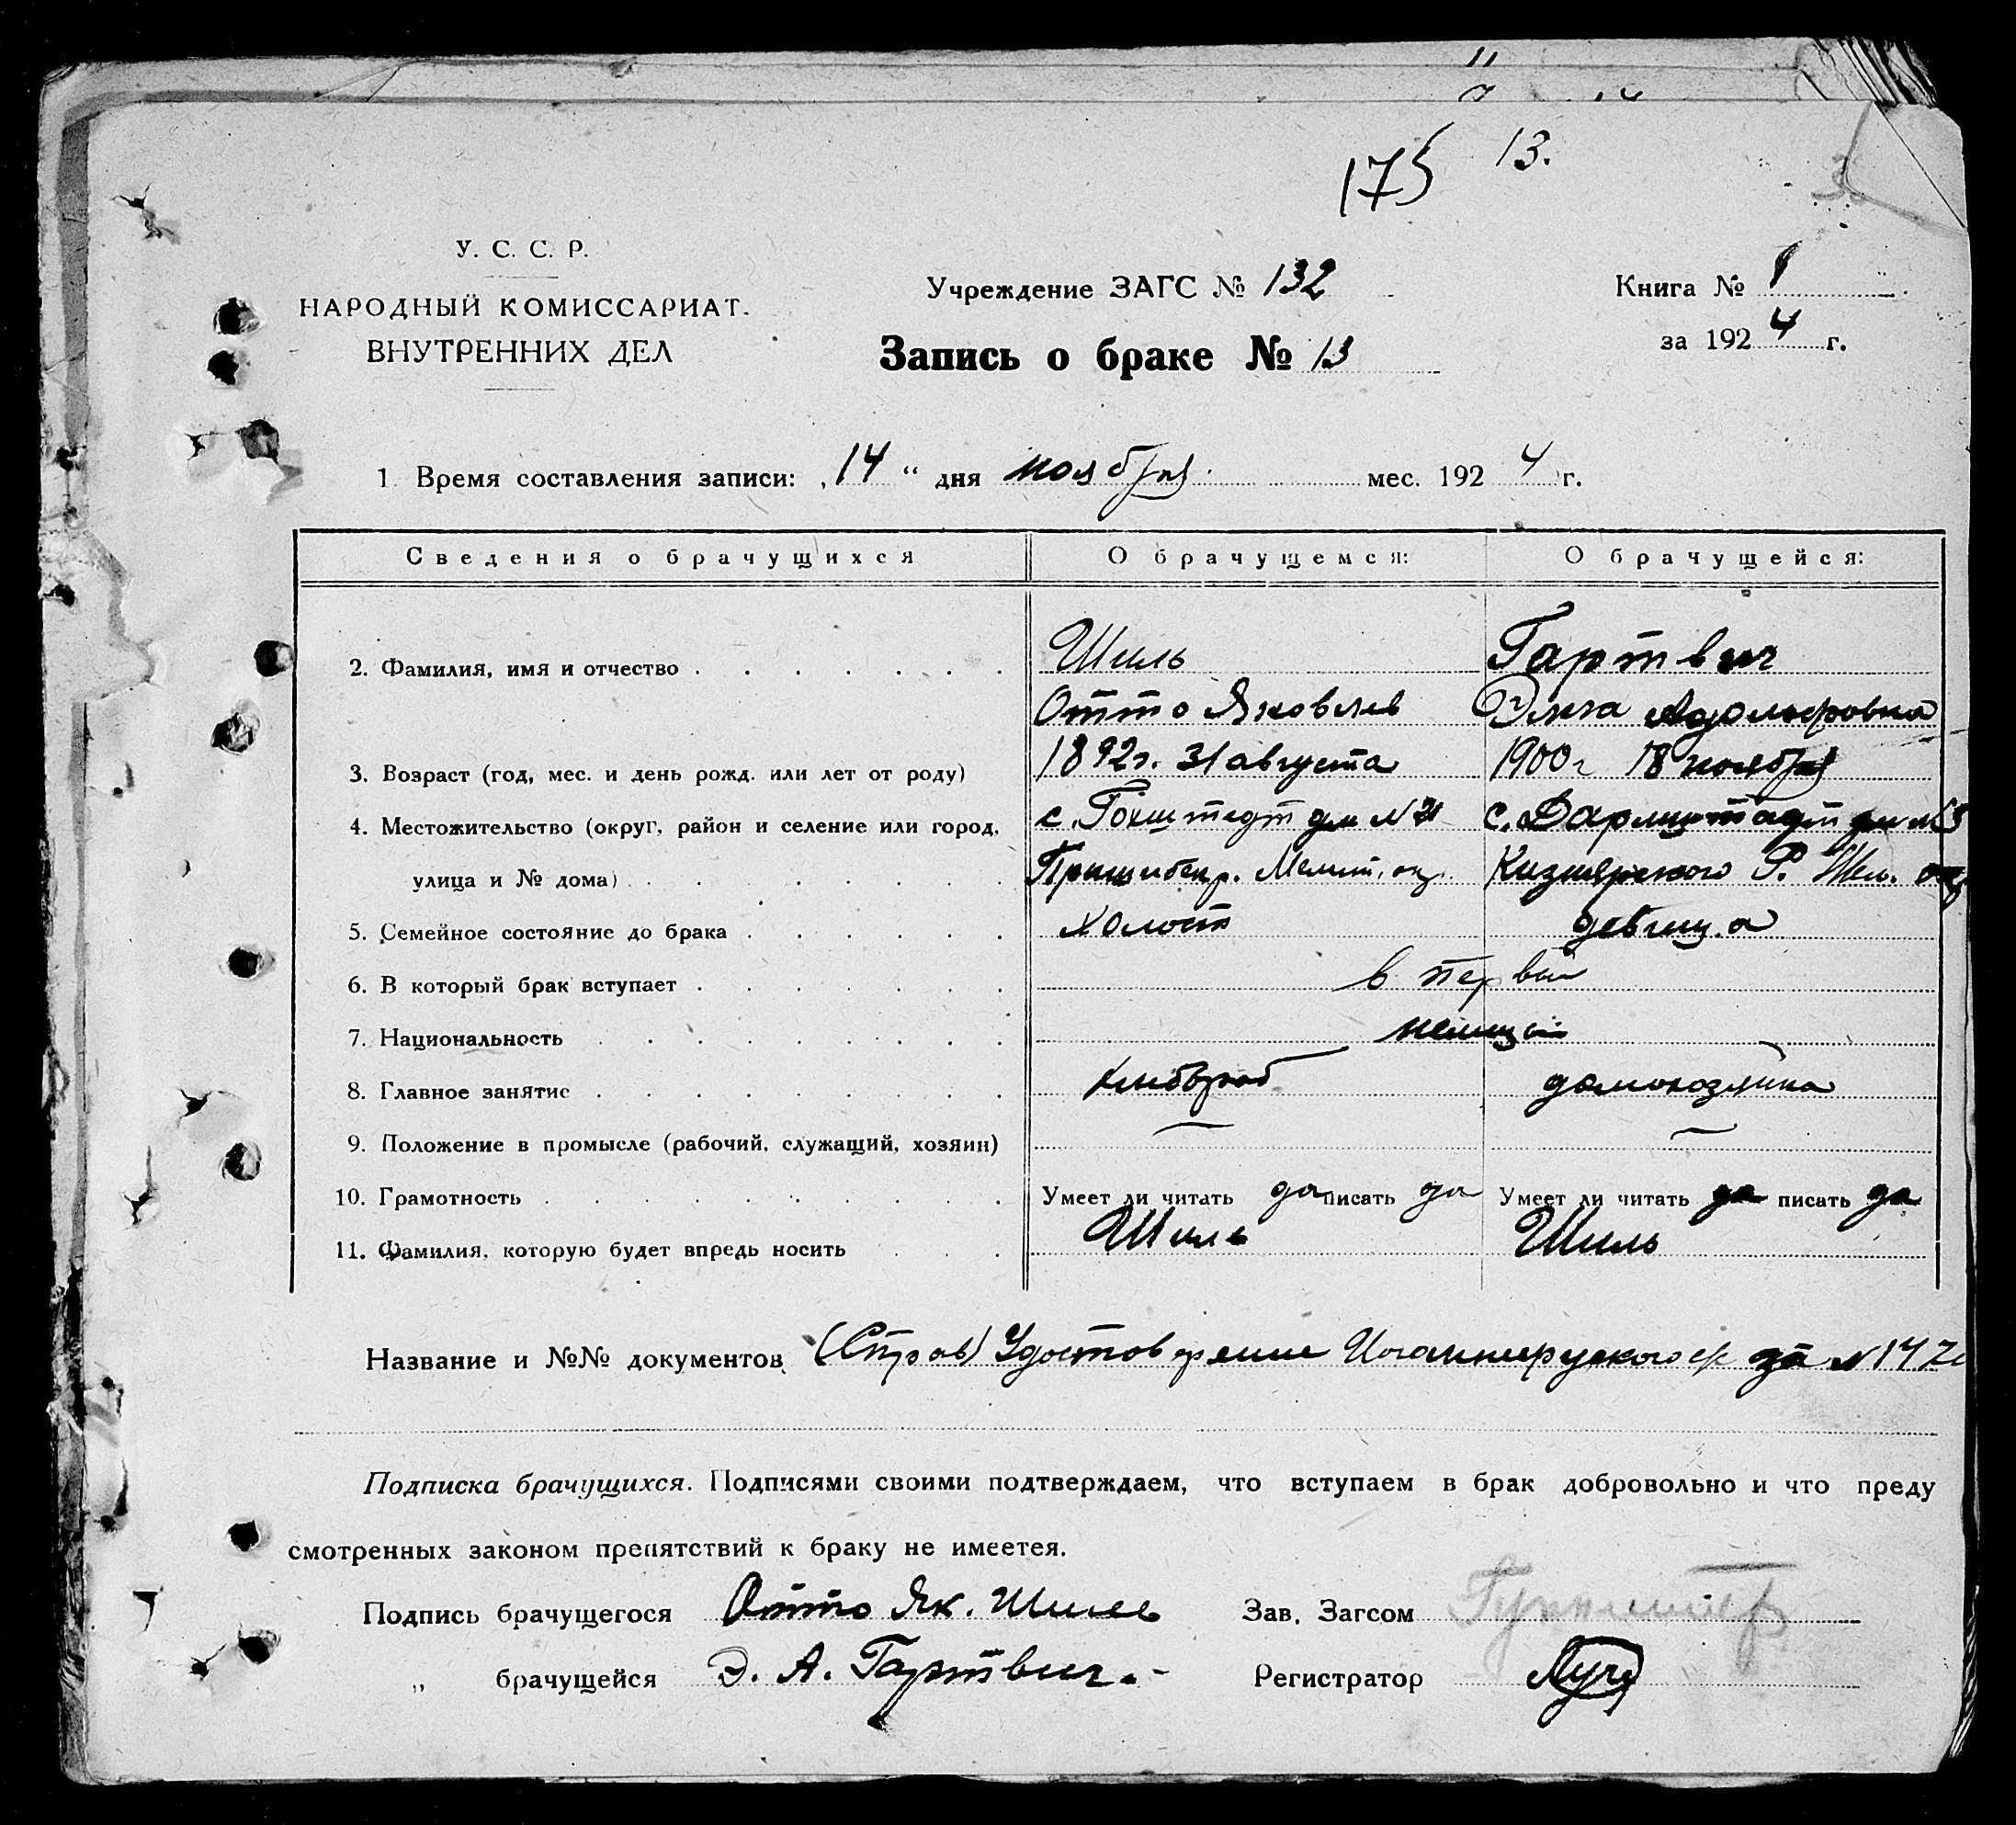 175 13.
У. С. С. Р.
НАРОДНЫЙ КОМИССАРИАТ.
ВНУТРЕННИХ ДЕЛ
Учреждение ЗАГС № 132
Запись о браке № 13
Книга № 1
за 1924 г.
1. Время составления записи: „14“ дня ноября мес. 1924 г.
Сведения о брачущихся О брачущемся: О брачущейся:
2. Фамилия, имя и отчество Шиль Гартвиг
Отто Яковлев Эльга Адольфовна
3. Возраст (год, мес. и день рожд. или лет от роду) 1892г. 31 августа 1900г 18 ноября
4. Местожительство (округ, район и селение или город, с. Гохштедт дм №21 с. Дармштадт дм №3
улица и № дома) Пришибск р. Мелит. окр. Кизиярского Р. Мел. окр
5. Семейное состояние до брака холост девица
6. В который брак вступает в первый
7. Национальность немцы
8. Главное занятие хлебороб домохозяйка
9. Положение в промысле (рабочий, служащий, хозяин) — —
10. Грамотность Умеет ли читать да писать да Умеет ли читать да писать да
11. Фамилия, которую будет впредь носить Шиль Шиль
Название и №№ документов (Справ) Удостоверение Иоганнерусского с/с за №
Подписка брачущихся. Подписями своими подтверждаем, что вступаем в брак добровольно и что преду
смотренных законом препятствий к браку не имеетея.
Подпись брачущегося Отто Як. Шиль Зав. Загсом
„ брачущейся Э. А. Гартвиг.- Регистратор